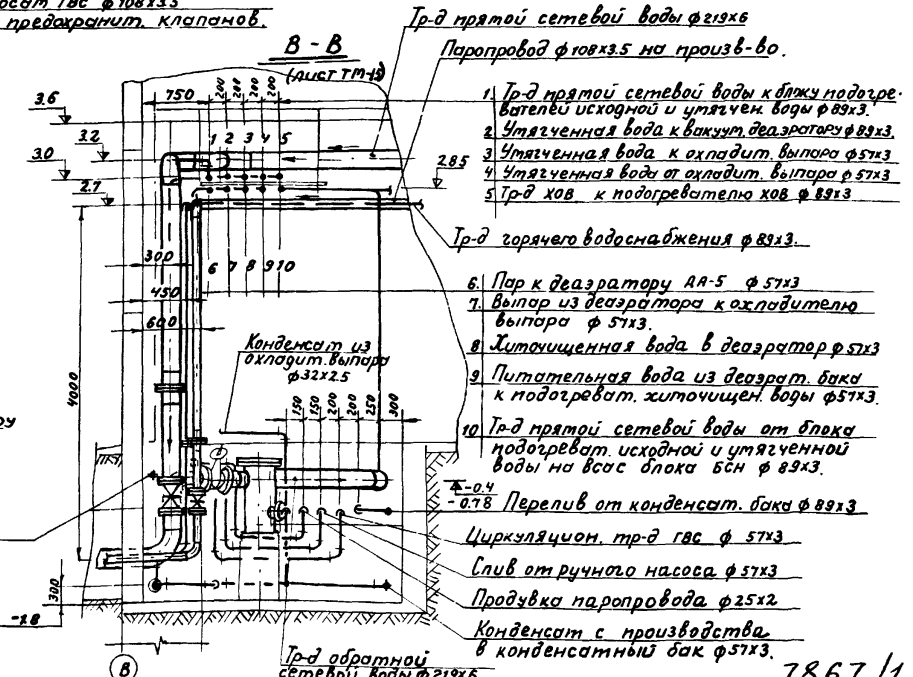 ГВС ф108х3.5
предохранит. клапанов.
В - В
(лист ТМ-15)
Тр-д прямой сетевой воды ф219х6
Паропровод ф108х3.5 на произв-во.
1 Тр-д прямой сетевой воды к блоку подогре-
вателей исходной и утягчен. воды ф89х3.
2 Утягченная вода к вакуум. деаэратору ф89х3.
3 Утягченная вода к охладит. выпара ф57х3
4 Утягченная вода от охладит. выпара ф57х3
5 Тр-д ХОВ к подогревателю ХОВ ф89х3
Тр-д горячего водоснабжения ф89х3.
6. Пар к деаэратору ДА-5 ф57х3
7. Выпар из деаэратора к охладителю
выпара ф57х3.
8 Химочищенная вода в деаэратор ф57х3
9 Питательная вода из деаэрат. бака
к подогреват. химочищен. воды ф57х3.
10 Тр-д прямой сетевой воды от блока
подогреват. исходной и утягченной
воды на всас блока БСН ф89х3.
Перелив от конденсат. бака ф89х3
Циркуляцион. тр-д ГВС ф57х3
Слив от ручного насоса ф57х3
Продувка паропровода ф25х2
Конденсат с производства
в конденсатный бак ф57х3.
750 200 200 200 200
3.6
3.2
3.0
2.7
2.85
1 2 3 4 5
300
6 7 8 9 10
450
600
4000
Конденсат из
охладит. выпара
ф32х2.5
150 150 200 200 250 300
-0.4
-0.78
300
-1.8
В
Тр-д обратной
сетевой воды ф219х6
7867/1